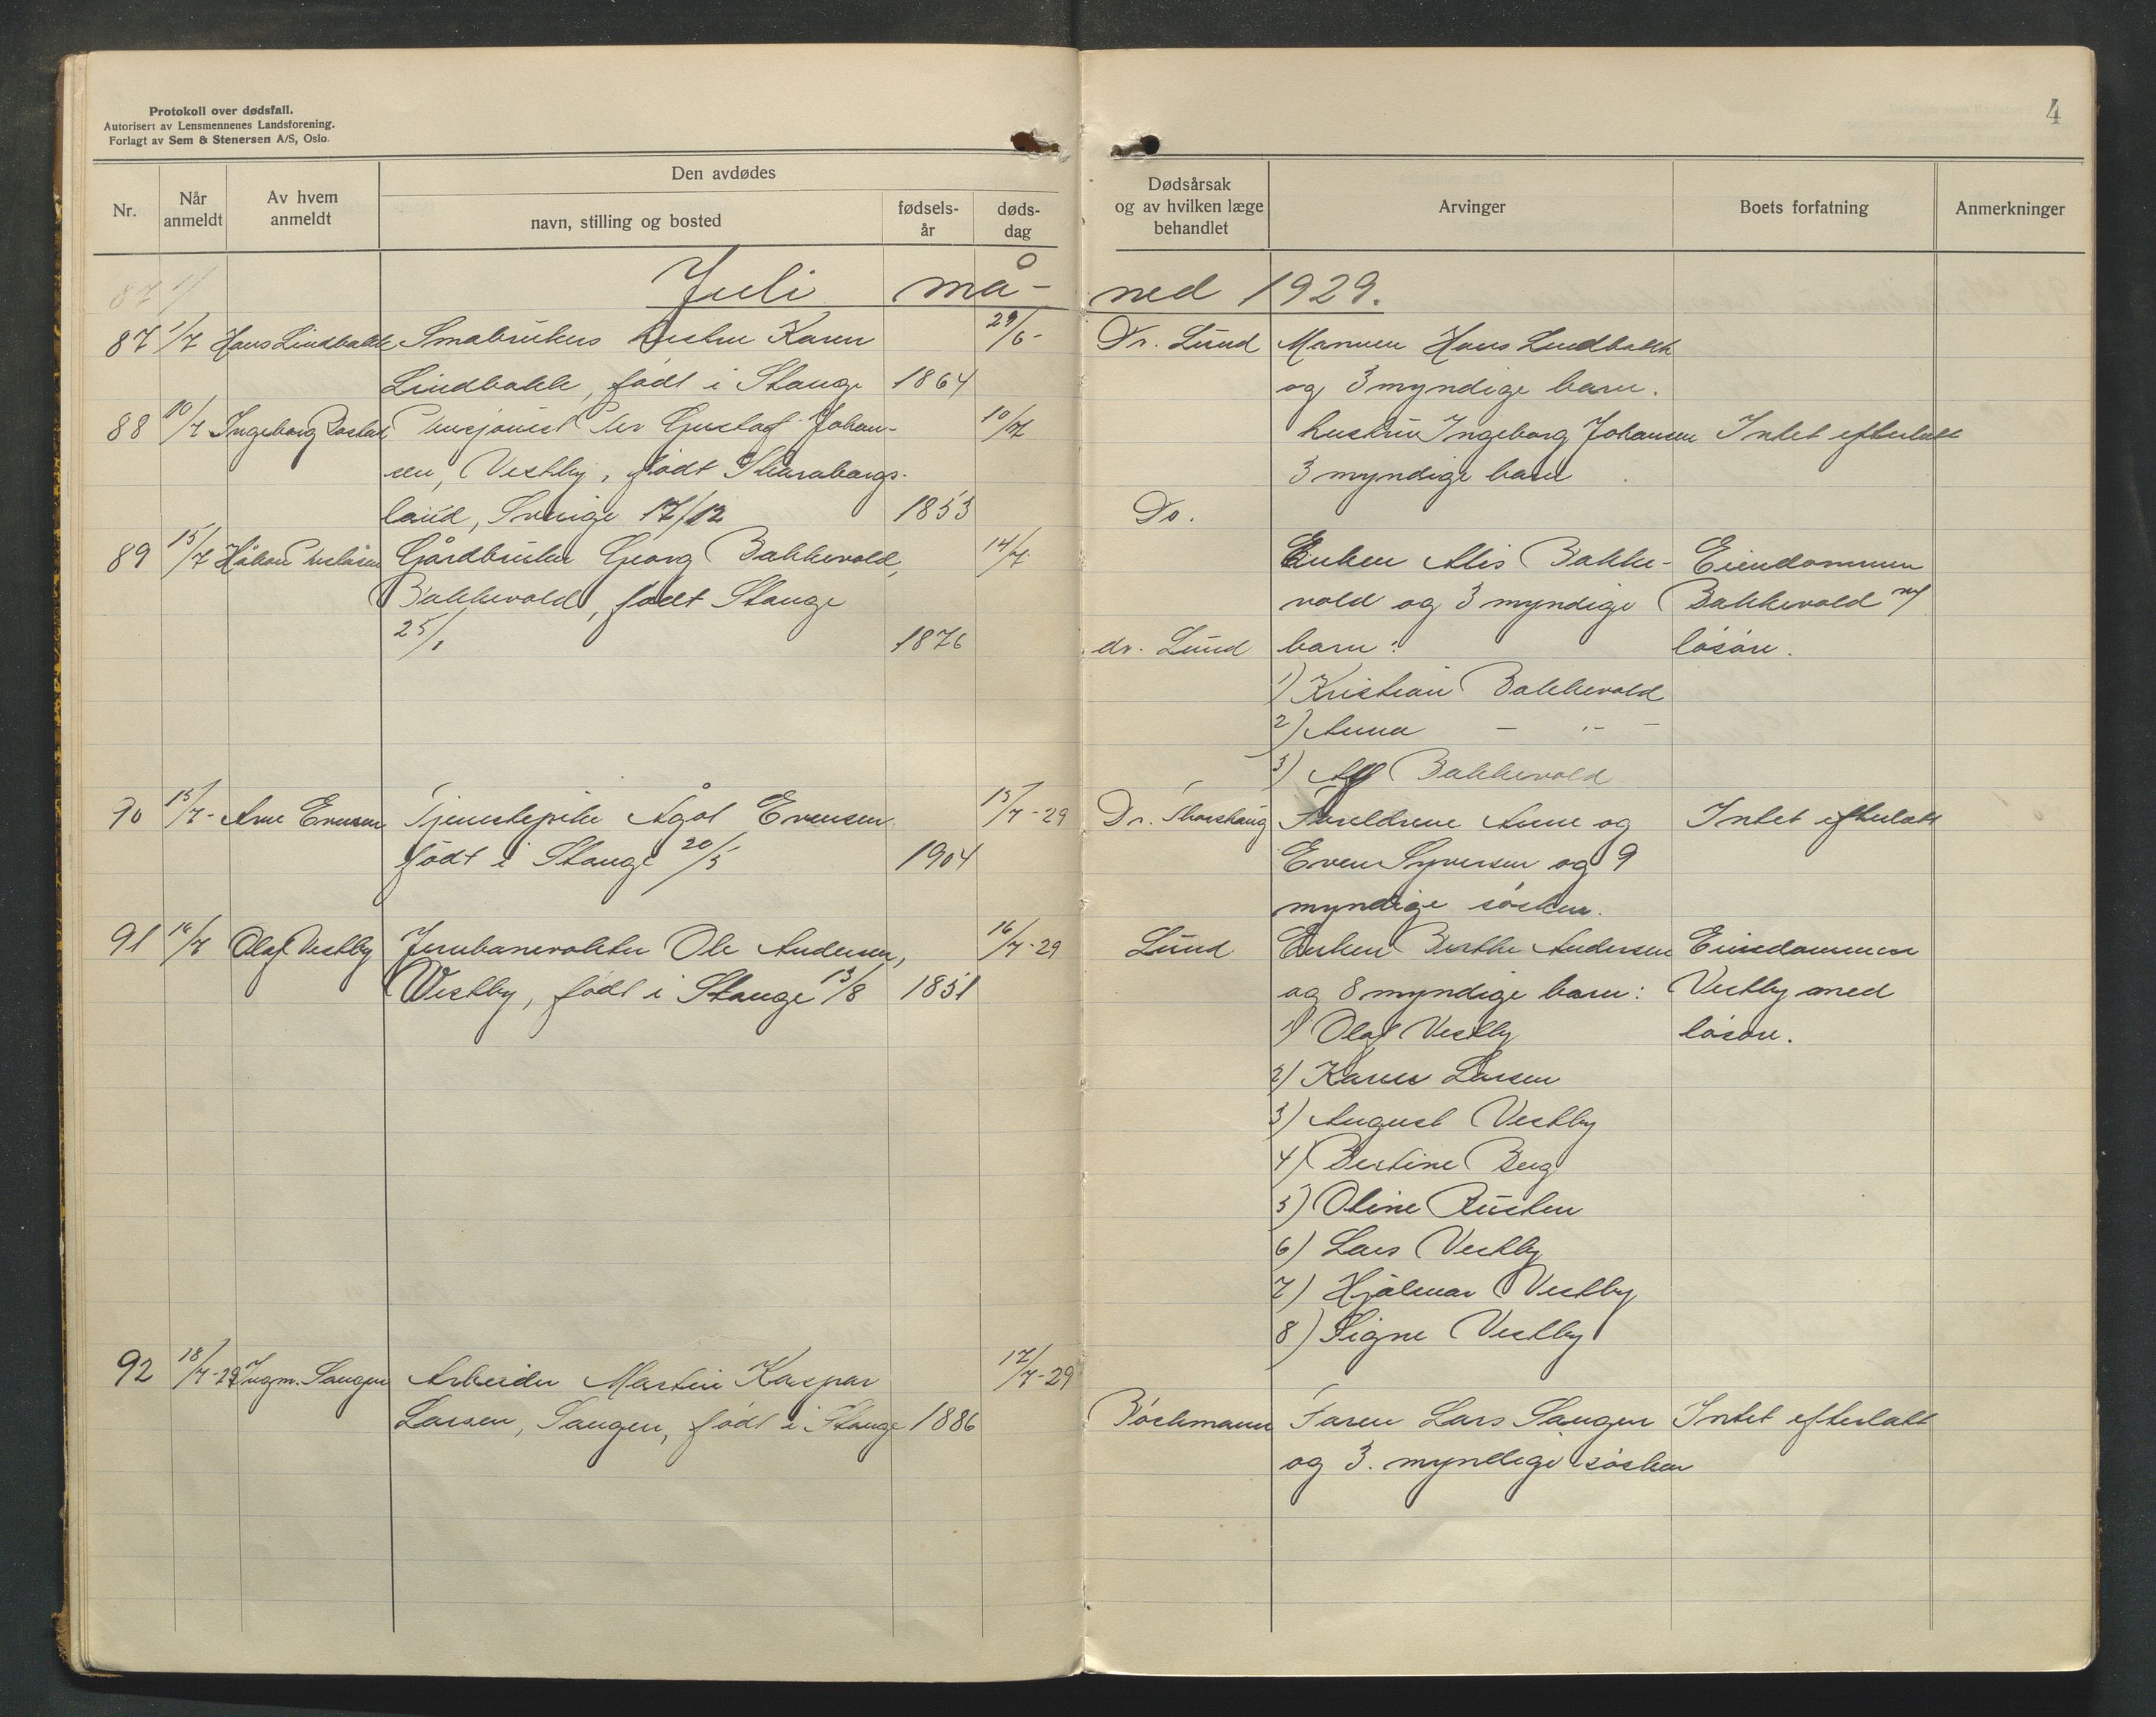 Protokoll over dødsfall.
Autorisert av Lensmennenes Landsforening.
Forlagt av Sem & Stenersen A/S, Oslo.
4
Nr.
Når anmeldt
Av hvem anmeldt
Den avdødes
navn, stilling og bosted
fødsels-år
døds-dag
Dødsårsak og av hvilken læge behandlet
Arvinger
Boets forfatning
Anmerkninger
Juli må- ned 1929.
87 1/7 Hans Lindbakk Småbrukers hustru Karen 29/6- Dr. Lund Mannen Hans Lindbakk
Lindbakk, født i Stange 1864 og 3 myndige barn.
88 10/7 Ingeborg Pensjonist Per Gustaf Johan- 10/7 hustru Ingeborg Johansen Intet efterlatt
sen, Vestby, født Skaraborgs- 3 myndige barn
land, Sverige 17/12 1853 Do.
89 15/7 Håkon Gårdbruker Georg Bakkevold, 14/7 Enken Alis Bakke- Eiendommen
Bakkevold, født Stange vold og 3 myndige Bakkevold m/
25/1 1876 dr. Lund barn: løsøre.
1) Kristian Bakkevold
2) Anna — " —
3) Alf Bakkevold
90 15/7- Arne Evensen Tjenestepike Ågot Evensen 15/7-29 Dr. Thorshaug Foreldrene Anne og Intet efterlatt
født i Stange 20/5 1904 Even Syversen og 9
myndige søsken.
91 16/7 Olaf Vestby Jernbanevokter Ole Andersen, 16/7-29 Lund Enken Berthe Andersen Eiendommen
Westby, født i Stange 13/8 1851 og 8 myndige barn: Vestby med
1) Olaf Vestby løsøre.
2) Karen Larsen
3) August Vestby
4) Bertine Berg
5) Oline Rusten
6) Lars Vestby
7) Hjalmar Vestby
8) Signe Vestby
92 18/7-29 Ingm. Saugen Arbeider Martin Kaspar 17/7-29
Larsen, Saugen, født i Stange 1886 Bøckmann Faren Lars Saugen Intet efterlatt
og 3. myndige søsken